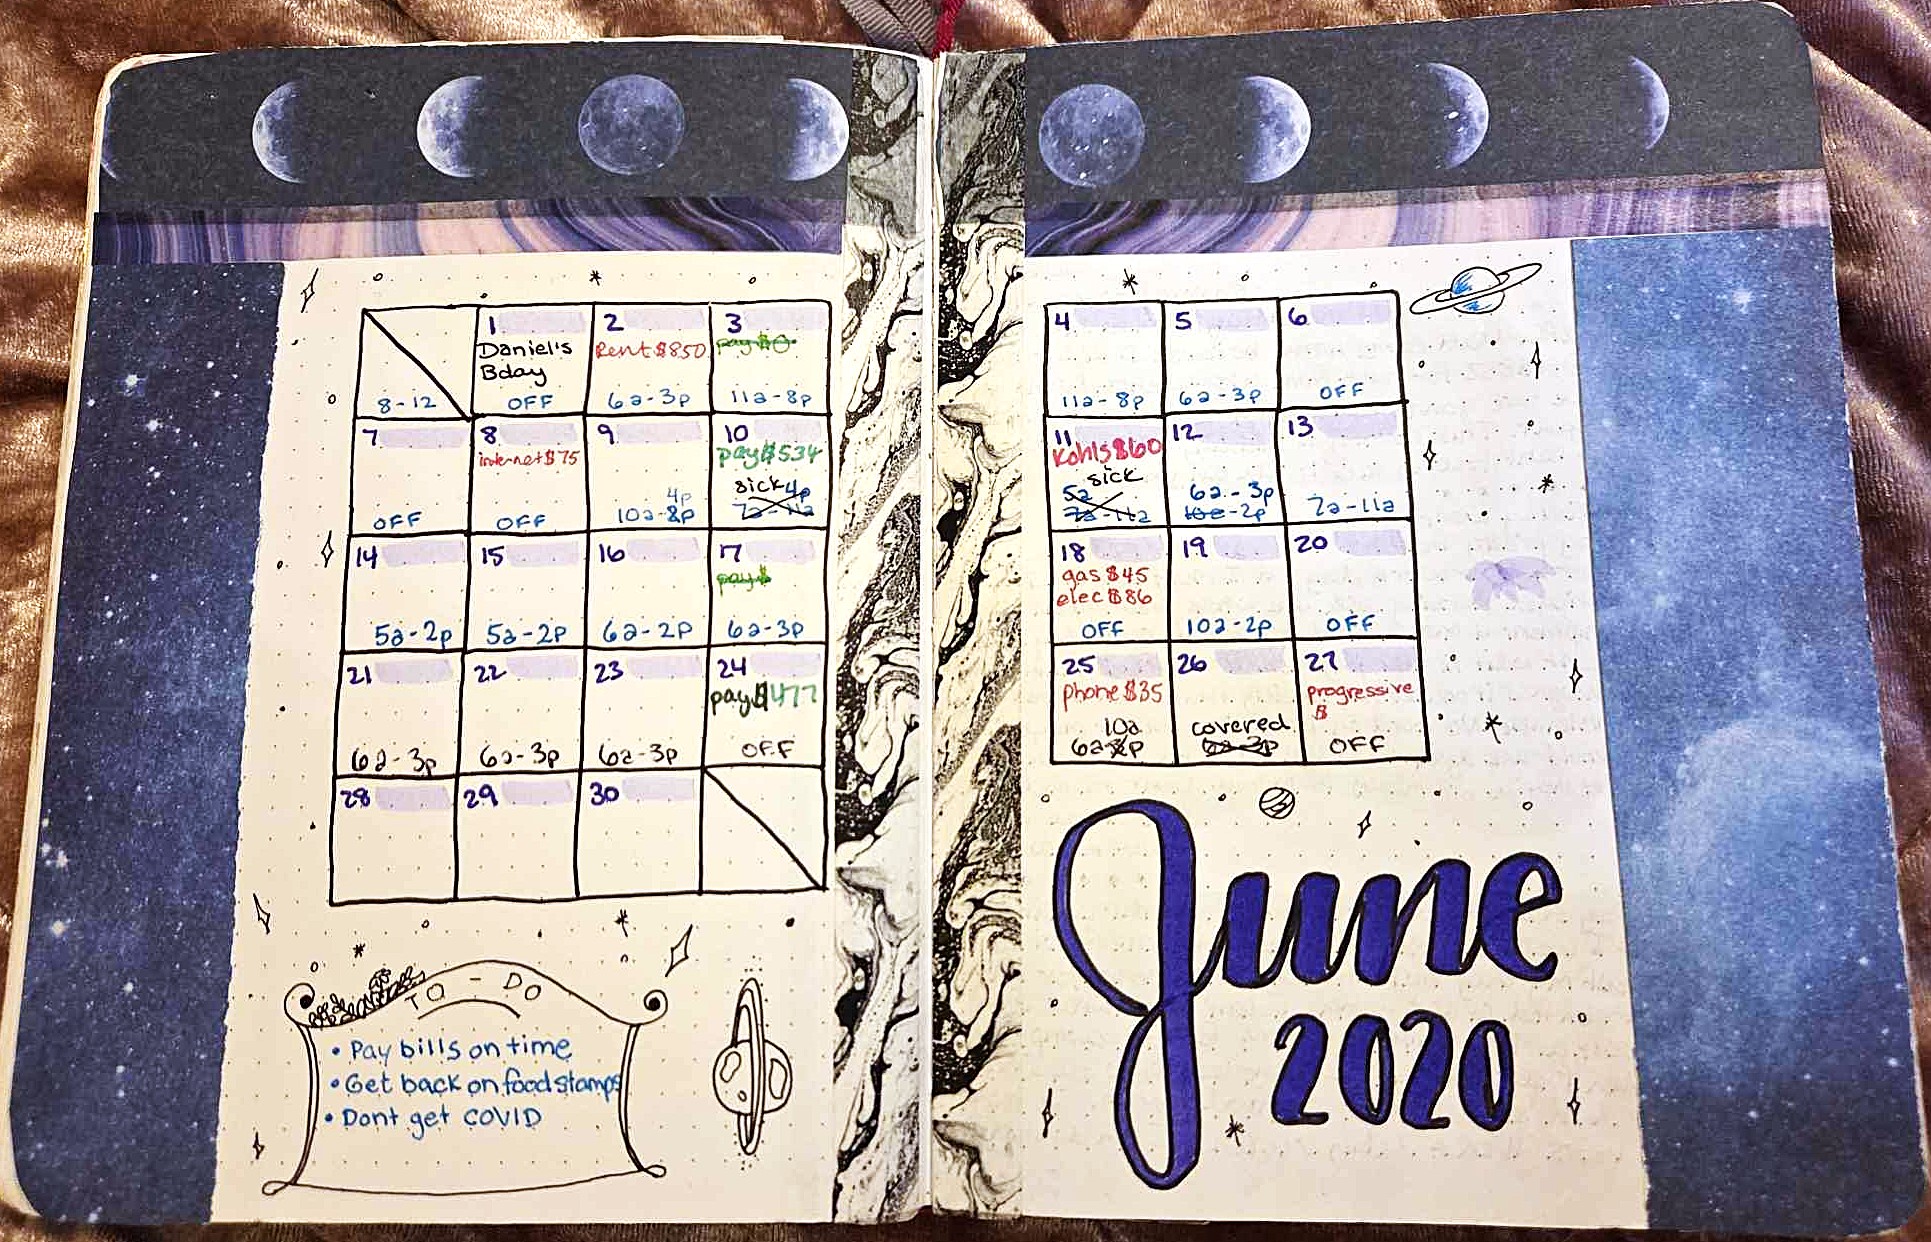 8-12
1
Daniel's
Bday
OFF
2
Rent $850
6a-3p
3
pay $0
11a-8p
4
11a-8p
5
6a-3p
6
OFF
7
OFF
8
internet $75
OFF
9
4p
10a-8p
10
pay $534
sick 4p
7a-11a
11
Kohls $60
sick
5a
7a-11a
12
6a-3p
10a-2p
13
7a-11a
14
5a-2p
15
5a-2p
16
6a-2p
17
pay $
6a-3p
18
gas $45
elec $86
OFF
19
10a-2p
20
OFF
21
6a-3p
22
6a-3p
23
6a-3p
24
pay $477
OFF
25
phone $35
10a
6a-2p
26
covered
6a-3p
27
progressive
$
OFF
28
29
30
June
2020
TO-DO
• Pay bills on time
• Get back on food stamps
• Dont get COVID